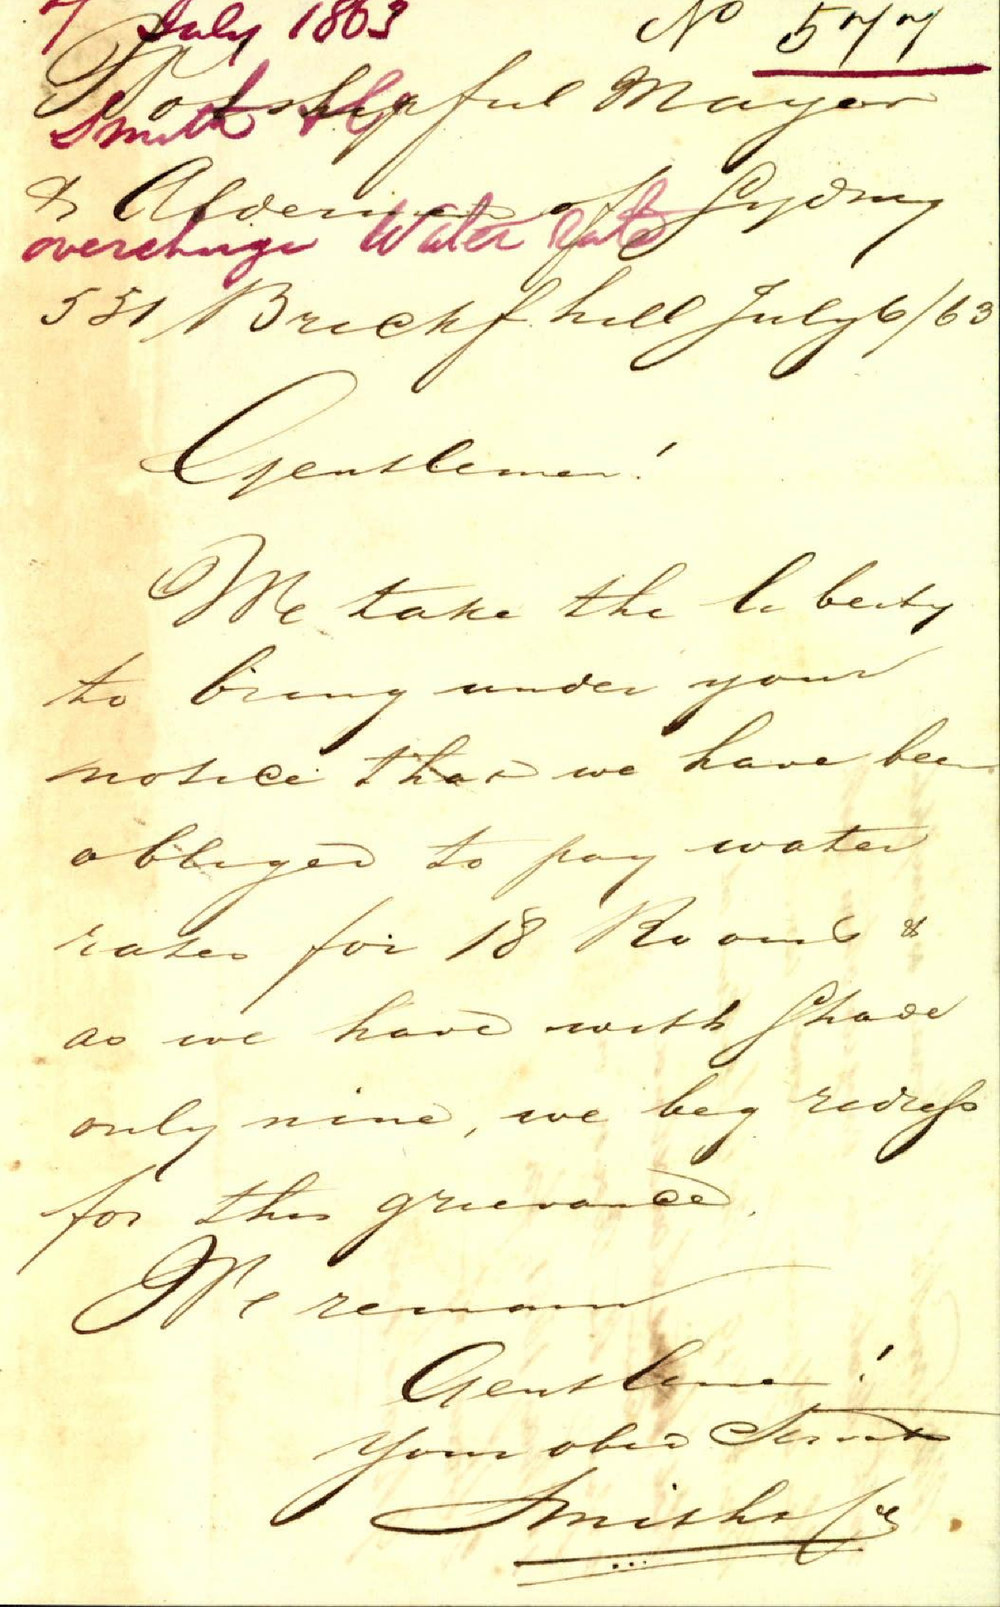 7 July 1863 No 577
Worshipful Mayor
Smith & Co
& Aldermen of Sydney
overcharge Water Rate
551 Brickf. hill July 6/63
Gentlemen!
We take the liberty
to bring under your
notice that we have been
obliged to pay water
rates for 18 Rooms &
as we have with Shade
only nine, we beg redress
for this grievance.
We remain
Gentlemen!
Your obed Servants
Smith & Co